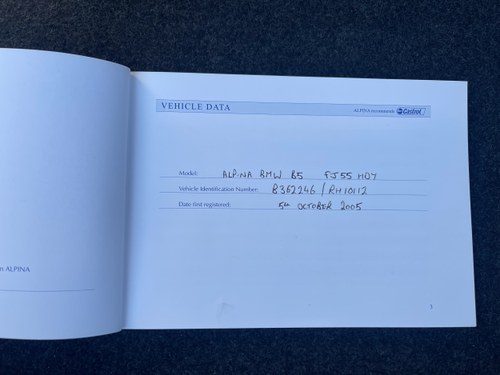 VEHICLE DATA
ALPINA recommends Castrol
Model: ALPINA BMW B5 FJ55 HDY
Vehicle Identification Number: B362246 / RH10112
Date first registered: 5th OCTOBER 2005
ALPINA
1